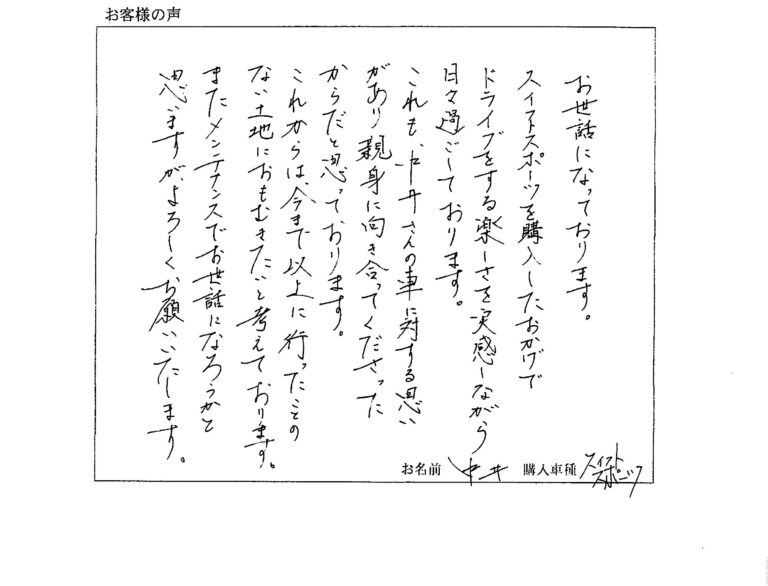 お客様の声
お世話になっております。
スイフトスポーツを購入したおかげで
ドライブをする楽しさを実感しながら
日々過ごしております。
これも、中井さんの車に対する思い
があり親身に向き合ってくださった
からだと思っております。
これからは、今まで以上に行ったことの
ない土地におもむきたいと考えております。
またメンテナンスでお世話になろうかと
思いますが、よろしくお願いいたします。
お名前 中井 購入車種 スイフトスポーツ